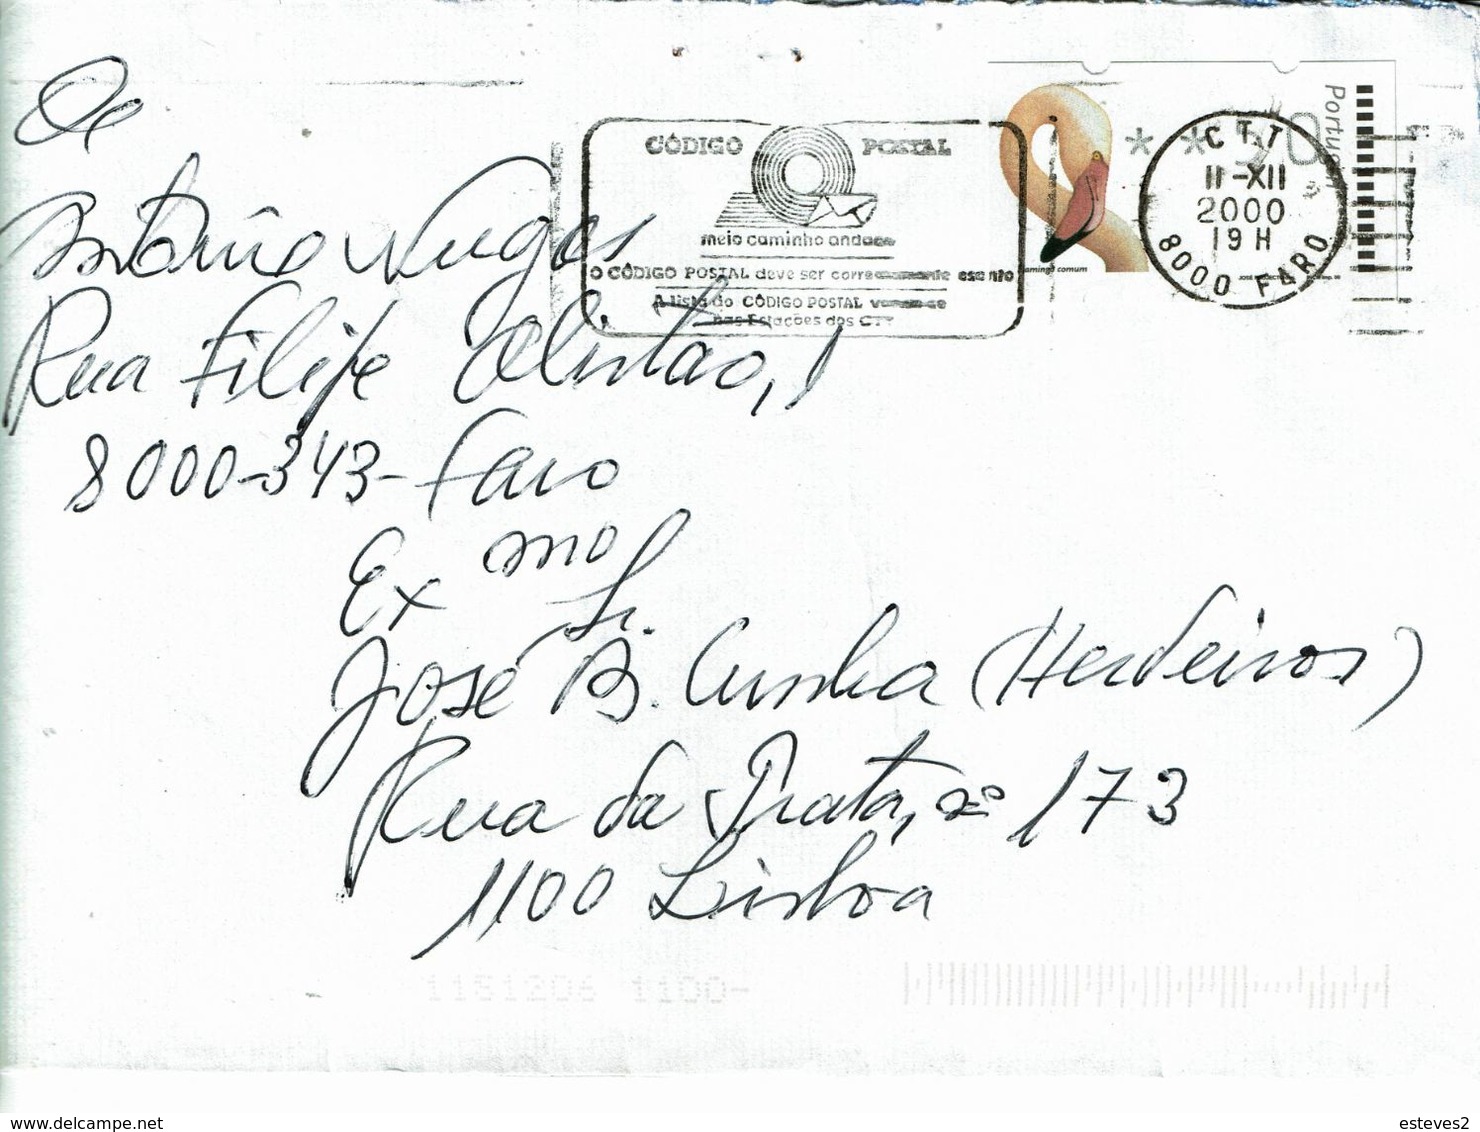 De
António Vargas
Rua Filipe Alistão, 1
8000-343-Faro
CÓDIGO POSTAL
meio caminho andado
O CÓDIGO POSTAL deve ser correctamente escrito
A lista do CÓDIGO POSTAL vende-se
nas Estações dos CTT
Portugal
flamingo comum
CTT
11-XII
2000
19 H
8000 FARO
Ex mo
Sr.
José B. Cunha (Herdeiros)
Rua da Prata, nº 173
1100 Lisboa
1100-
delcampe.net
esteves2